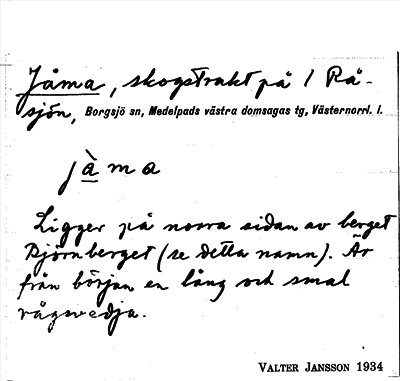 Jåma, skogstrakt på / Rå-
sjön, Borgsjö sn, Medelpads västra domsagas tg, Västernorrl. l.
jà m a
Ligger på norra sidan av berget
Björnberget (se detta namn). Är
från början en lång och smal
vågsvedja.
VALTER JANSSON 1934